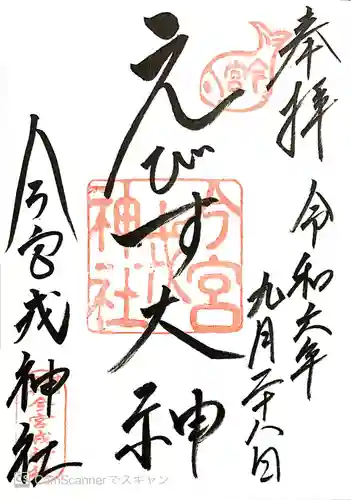 奉拝
令和六年
九月二十八日
えびす大神
今宮戎神社
今宮
今宮戎神社
今宮戎神社
CamScannerでスキャン